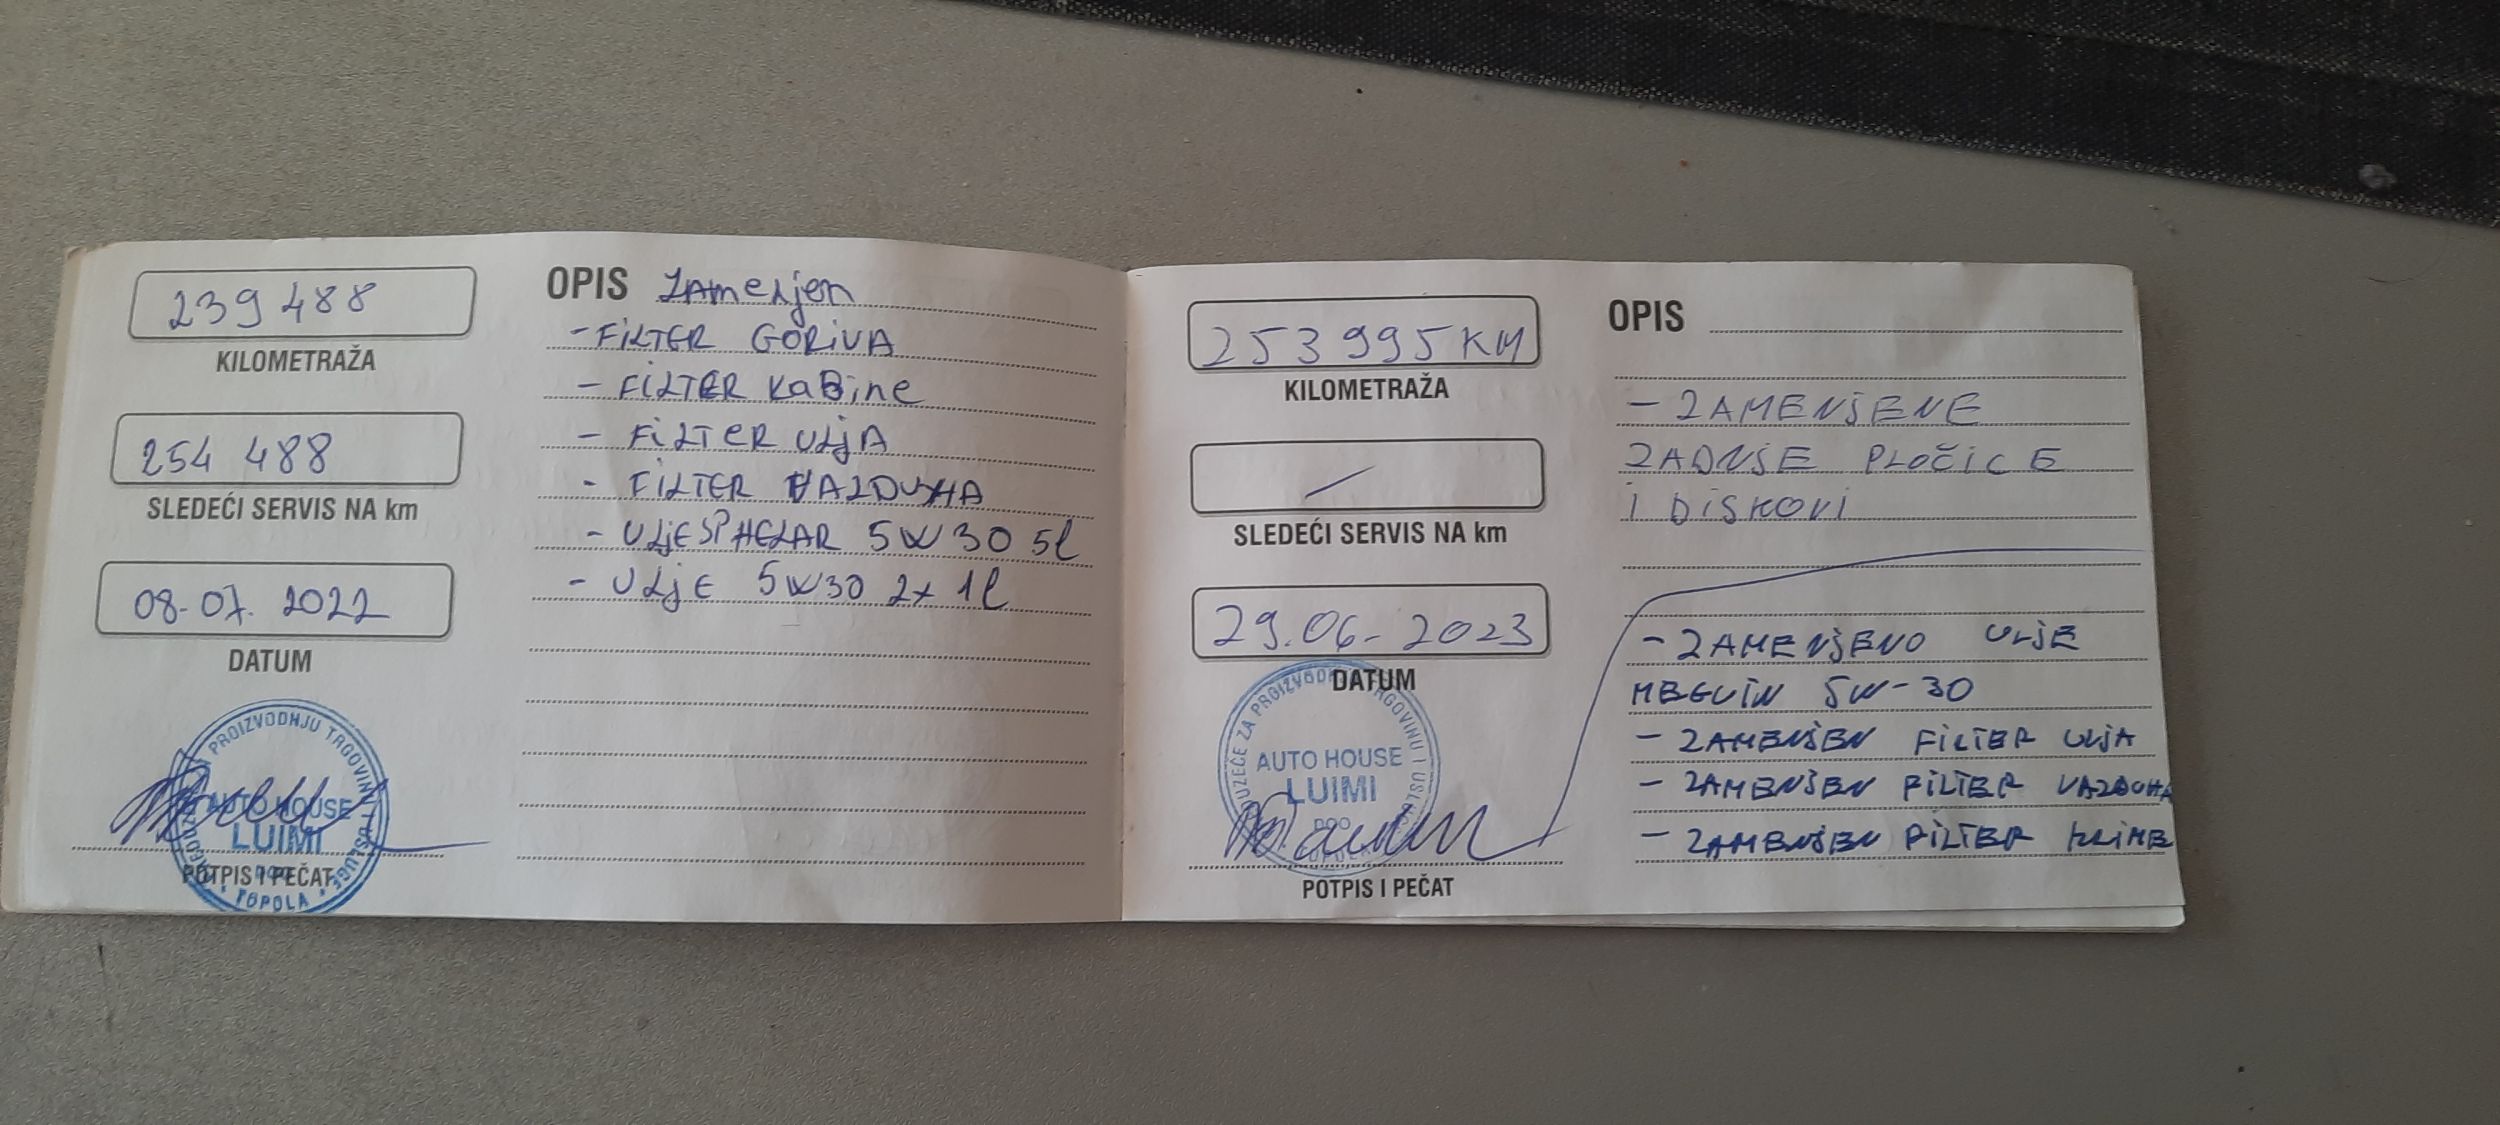 239 488
KILOMETRAŽA
254 488
SLEDEĆI SERVIS NA km
08.07. 2022
DATUM
PROIZVODNJU TRGOVINU I USLUGE
AUTO HOUSE
LUIMI
DOO
TOPOLA
POTPIS I PEČAT
OPIS Zamenjen
- FILTER GORIVA
- FILTER KaBine
- FiLTeR ULjA
- FILTER VAZDUHA
- ULjE SPHELAR 5W30 5l
- ULjE 5W30 2x 1l
253 995 KM
KILOMETRAŽA
SLEDEĆI SERVIS NA km
29.06-2023
DATUM
UZEĆE ZA PROIZVOD TRGOVINU I USLU
AUTO HOUSE
LUIMI
DOO
POTPIS I PEČAT
OPIS
- ZAMENJENE
ZADNJE PLOČICE
I DISKOVI
- ZAMENJENO ULJE
MEGUIN 5W-30
- ZAMENJEN FILTER ULJA
- ZAMENJEN FILTER VAZDUHA
- ZAMENJEN FILTER KLIME